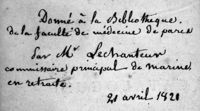 Donné à la Bibliothèque
de la faculté de médecine de paris
Par Mr Lechanteur
commissaire principal de marine
en retraite.
21 avril 1821